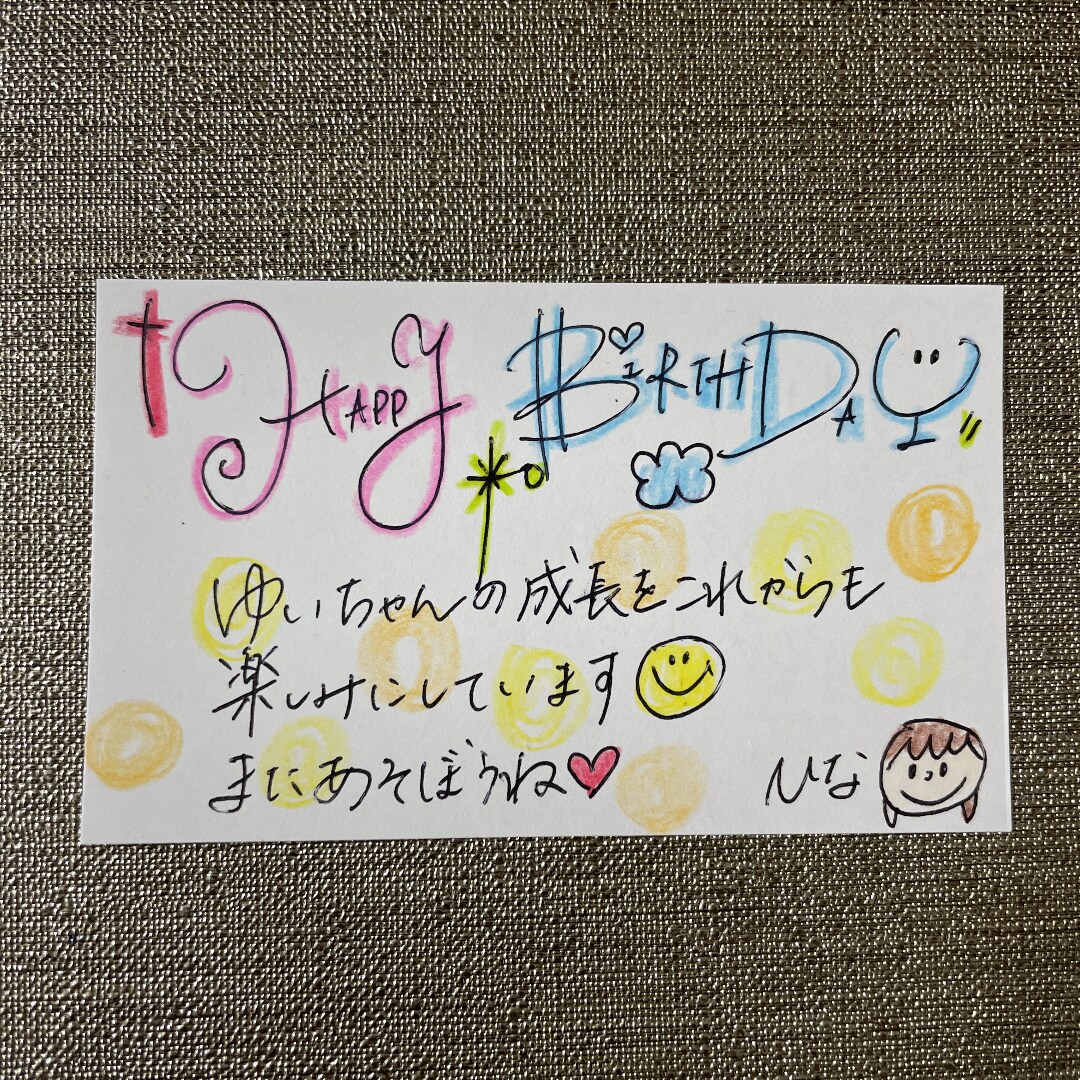 HAPPY BIRTHDAY
ゆいちゃんの成長をこれからも
楽しみにしています
またあそぼうね
ひな